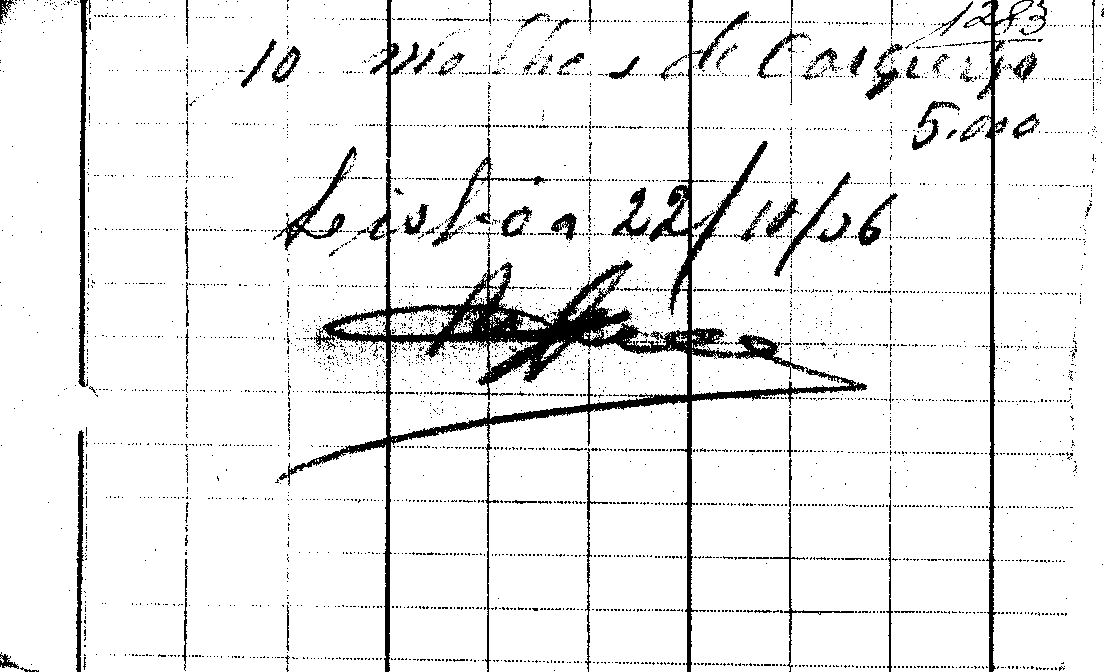 1283
10 Molhos de Carqueja
5.000
Lisbôa 22/10/36